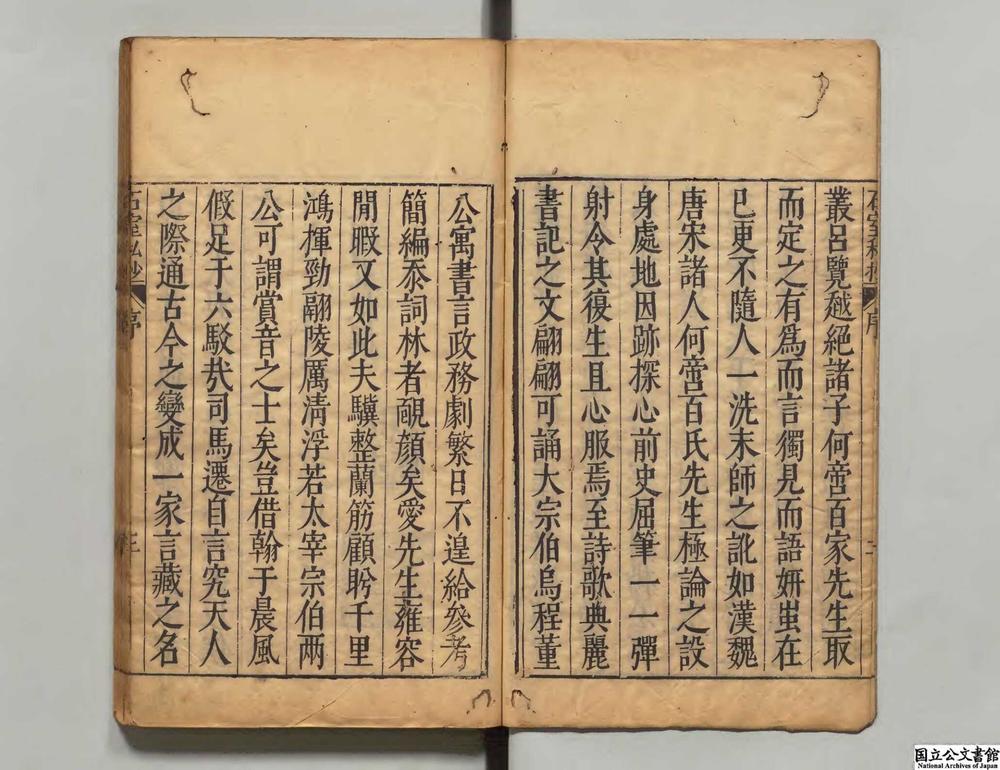 叢呂覽越絕諸子何啻百家先生取
而定之有爲而言獨見而語妍蚩在
已更不隨人一洗末師之訛如漢魏
唐宋諸人何啻百氏先生極論之設
身處地因跡探心前史屈筆一一彈
射令其復生且心服焉至詩歌典麗
書記之文翩翩可誦大宗伯烏程董
公寓書言政務劇繁日不遑給參考
簡編忝詞林者靦顏矣愛先生雍容
閒暇又如此夫驥整蘭筋顧盻千里
鴻揮勁翮陵厲清浮若太宰宗伯两
公可謂賞音之士矣豈借翰于晨風
假足于六駁㢤司馬遷自言究天人
之際通古今之變成一家言藏之名
序
国立公文書館
National Archives of Japan